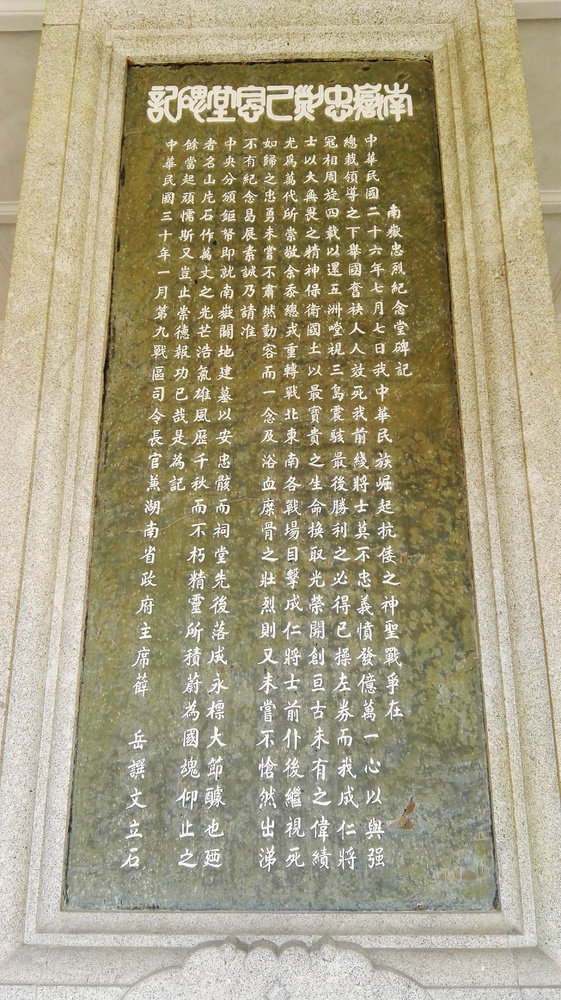 南嶽忠烈紀念堂碑記
南嶽忠烈紀念堂碑記
中華民國二十六年七月七日我中華民族崛起抗倭之神聖戰爭在
總裁領導之下舉國奮袂人人效死我前綫將士莫不忠義憤發億萬一心以與强
寇相周旋四載以還五洲瞠視三島震駭最後勝利之必得已操左券而我成仁將
士以大無畏之精神保衛國土以最寶貴之生命換取光榮開創亘古未有之偉績
尤為萬代所崇敬余忝總戎重轉戰北東南各戰場目擊成仁將士前仆後繼視死
如歸之忠勇未嘗不肅然動容而一念及浴血糜骨之壯烈則又未嘗不愴然出涕
不有紀念曷展素誠乃請准
中央分頒鉅帑即就南嶽闢地建墓以安忠骸而祠堂先後落成永標大節醵也廼
者名山片石作萬丈之光芒浩氣雄風歷千秋而不朽精靈所積蔚為國魂仰止之
餘當起頑懦斯又豈止崇德報功已哉是為記
中華民國三十年一月第九戰區司令長官兼湖南省政府主席薛 岳譔文立石